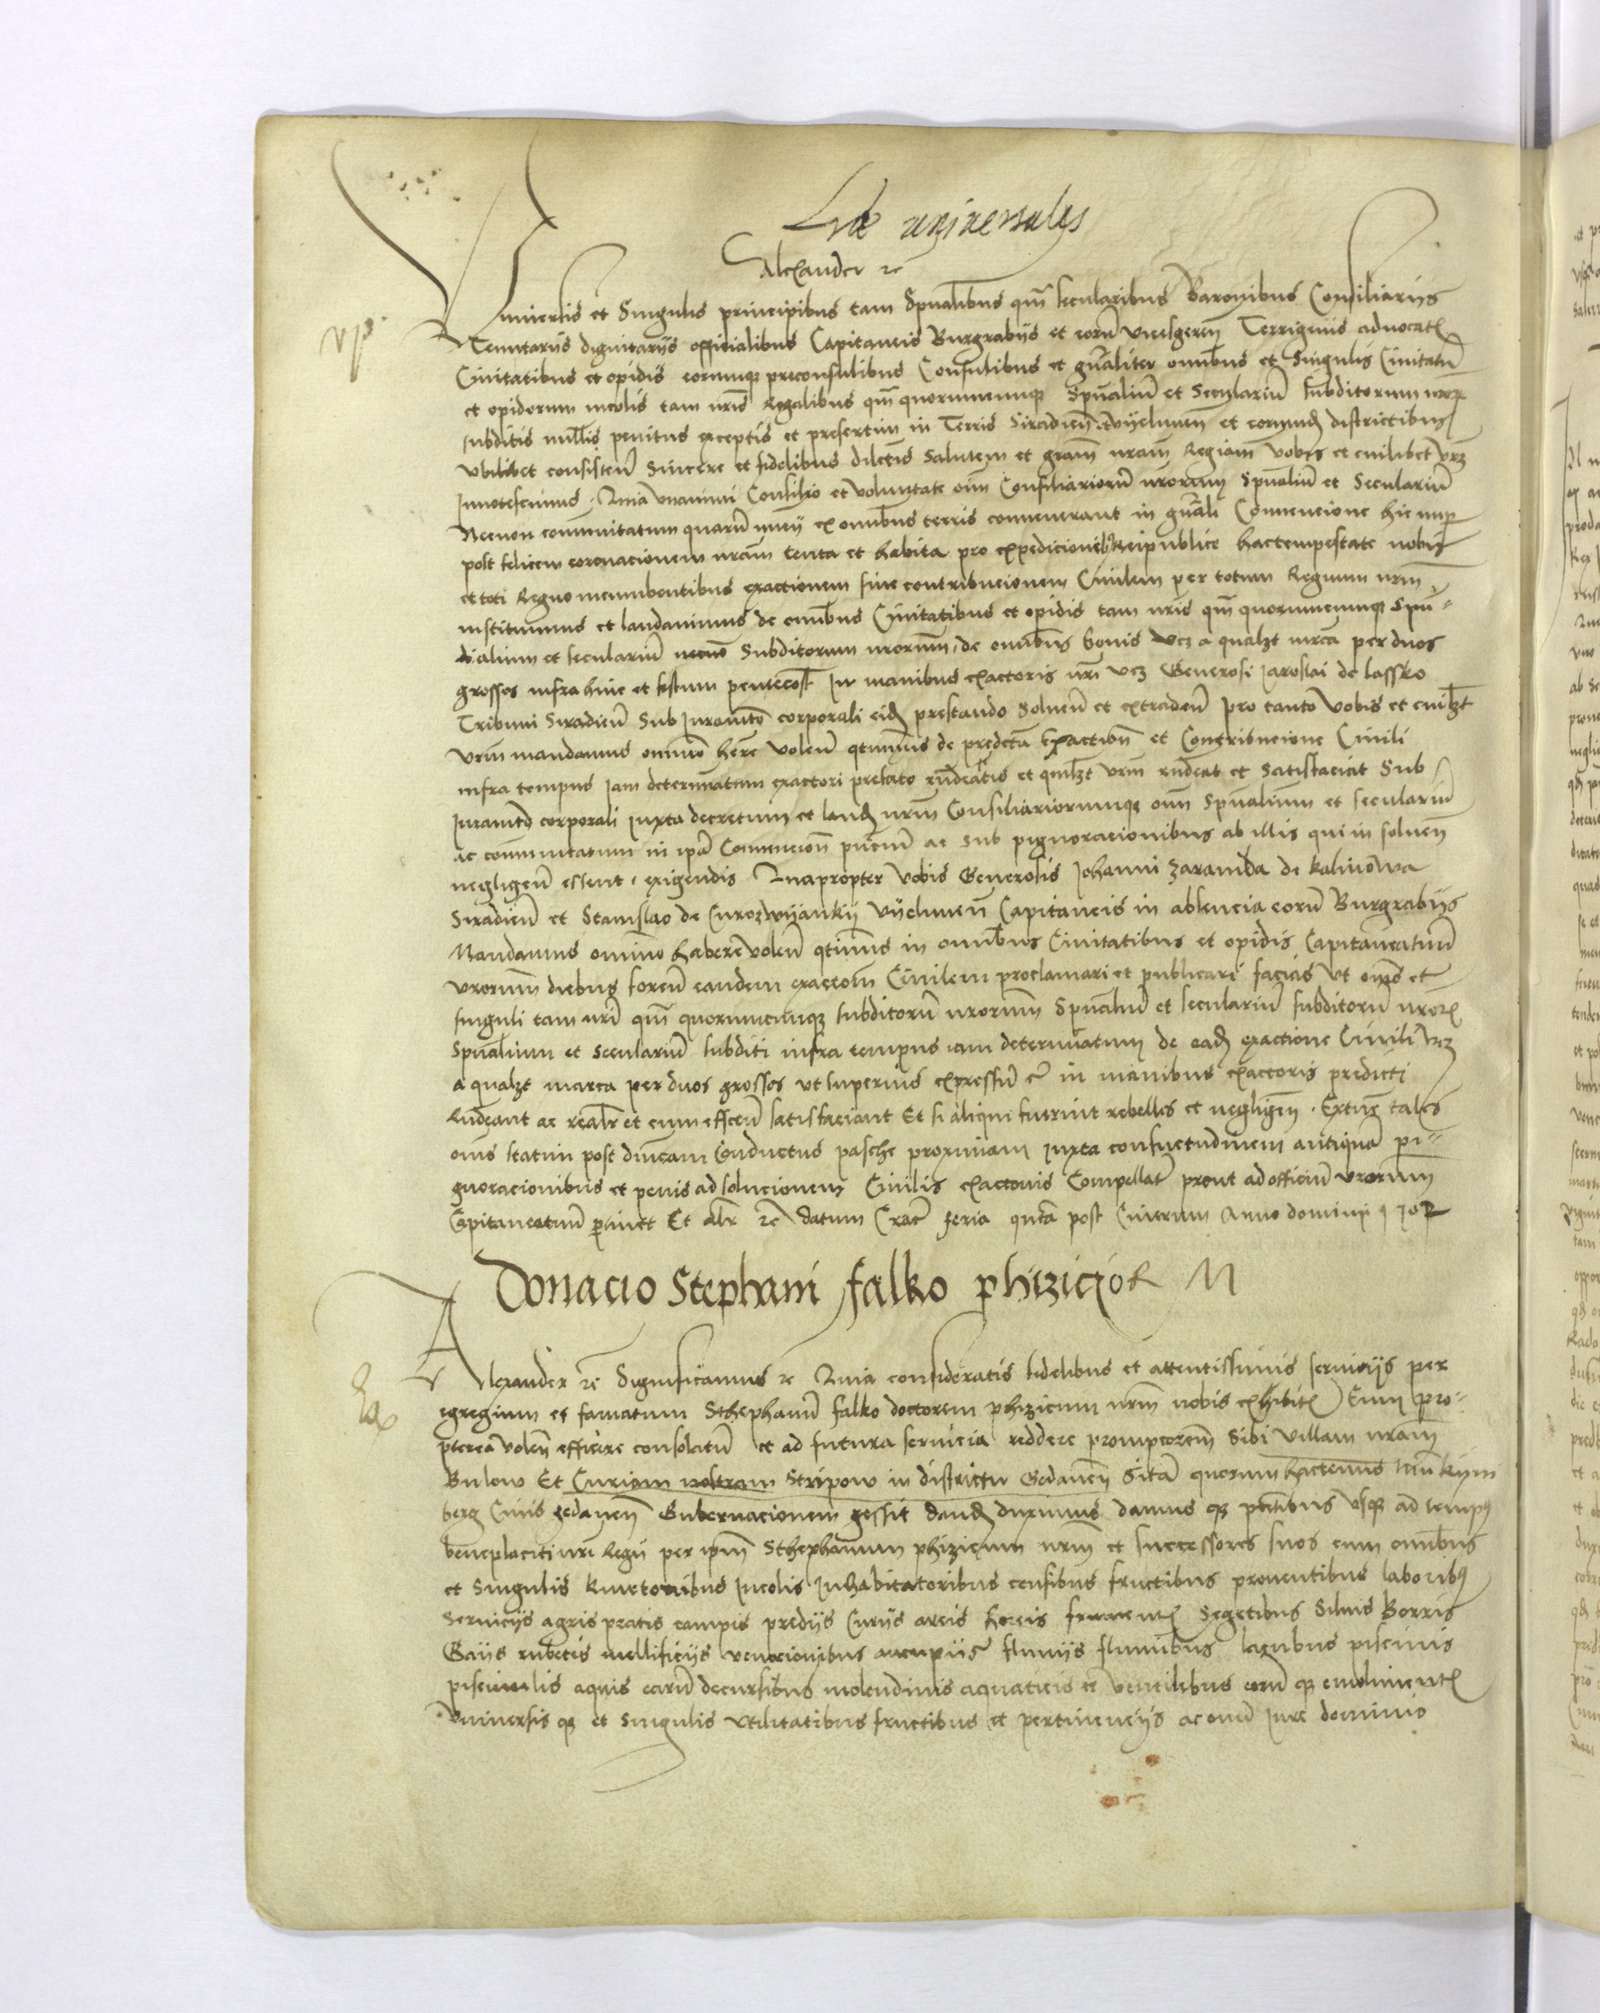 Lrẽ universales
Alexander ꝛc
Universis et Singulis principibus tam Spũalibus qm̃ secularibus Baronibus Consiliariis
Tenutariis dignitariis officialibus Capitaneis Burgrabiis et eorũ vicesgereñ Terrigenis advocat
Civitatibus et opidis eorumque preconsulibus Consulibus et gñaliter omnibus et Singulis Civitatũ
et opidorum incolis tam nris Regalibus qm̃ quorumcumque Spũaliũ et Seculariũ subditorum nror
subditis nullis penitus exceptis et presertim in Terris Siradieñ et Vyelunen et eorund districtibus
ubilibet consisteñ Sincere et fidelibus dilectis Salutem et gram nram Regiam Vobis et cuilibet vrm
Innotescimus Quia unanimi Consilio et voluntate oim Consiliariorũ nrorum Spũaliũ et Seculariũ
Necnon communitatum quarũ nuncii ex omnibus terris convenerant in gñali Convencione hic nuper
post felicem coronacionem nram tenta et habita pro expedicionibus Reipublice hac tempestate nobis
et toti Regno incumbentibus exactionem sive contribucionem Civilem per totum Regnum nrm
instituimus et laudavimus de omnibus Civitatibus et opidis tam nris qm̃ quorumcumque Spũ-
alium et seculariũ Subditorum nrorum, de omnibus bonis vcz a qualzt marca per duos
grossos infra hinc et festum pentecost In manibus exactoris nri vcz Generosi Jaroslai de Lassko
Tribuni Siradieñ Sub Juramto corporali eid prestando Solveñ et extradeñ pro tanto Vobis et cuilzt
vrm mandamus omnino here voleñ qtinus de predicta Exaction et Contribucione Civili
infra tempus iam determinatum exactori prefato rndeatis et quilzt vrm rndeat et Satisfaciat Sub
Juramto corporali iuxta decretum et laud nrm Consiliariorumque oim Spũalium et seculariũ
ac communitatum in ipa Convencion puncuũ ac sub pignoracionibus ab illis qui in solven
negligeñ essent, exigendis Quapropter Vobis Generosis Johanni Zaramba de Kalinowa
Siradieñ et Stanislao de Curozwyanky Vyelunen Capitaneis in absencia eorũ Burgrabiis
Mandamus omnino habere voleñ qtinus in omnibus Civitatibus et opidis Capitaneatuũ
vrorum diebus foreñ eandem exaccom Civilem proclamari et publicari facias ut oms et
singuli tam nri qm̃ quorumcumque subditorũ nrorum Spũaliũ et seculariũ subditorũ nror
Spũalium et Seculariũ subditi infra tempus iam determinatum de ead exactione Civili vcz
a qualzt marca per duos grossos ut superius expressũ e in manibus exactoris predicti
Rndeant ac realr et cum effectũ satisfaciant Et si aliqui fuerint rebelles et negligen. Extunc tales
oms statim post dnicam Conductus pasche proximam iuxta consuetudinem antiquã pi-
gnoracionibus et penis ad solucionem Civilis exactonis Compellatr prout ad officiũ vrorum
Capitaneatuũ ptinet Et alr ꝛc datum Crac feria qnta post Cinerum Anno domini 1502
Donacio Stephani falko phizicio R M
Alexander ꝛc Significamus ꝛc Quia consideratis fidelibus et attentissimis serviciis per
egregium et famatum Sthephanũ falko doctorem phizicum nrm nobis exhibit Eum pro-
pterea voleñ efficere consolatũ et ad futura servicia reddere prompciorem Sibi Villam nram
Bulow Et Curiam nostram Stripow in districtu Gedaneñ Sitã quorum hactenus
berg Civis gedanen Gubernacionem gessit dand duximus damus qz pntibus usqz ad tempus
beneplaciti nri Regii per ipm Sthephanum phizicum nrm et successores suos cum omnibus
et Singulis kmetonibus Incolis Inhabitatoribus censibus fructibus proventibus laboribus
Serviciis agris pratis campis prediis Curiis areis horreis frument Segetibus Silvis Borris
Gaiis rubetis mellificiis venacionibus aucupiis fluviis fluminibus lacubus piscinis
pisciculis aquis earũ decursibus molendinis aquaticis et ventilibus eorũ qz emoliment
Universis qz et Singulis utilitatibus fructibus et pertinenciis ac omni Jure dominio